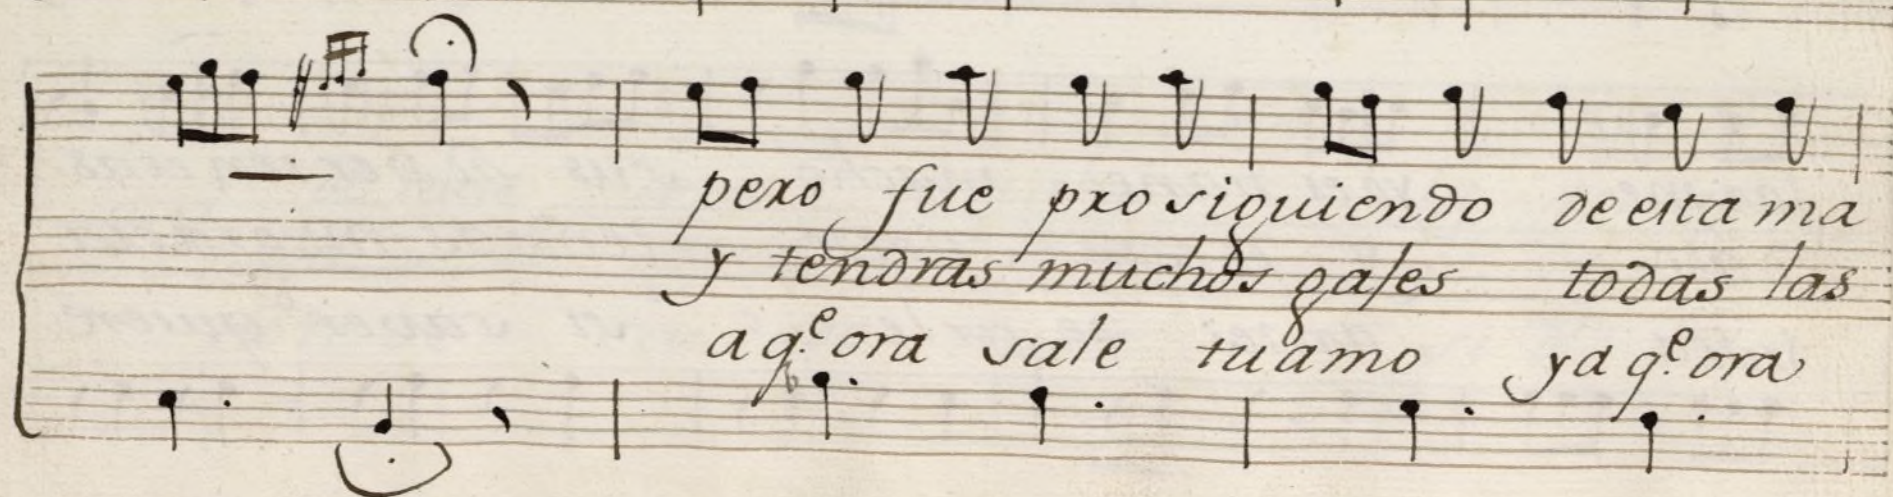 pero fue prosiguiendo de esta ma
y tendras muchos gajes todas las
a q.e ora sale tu amo y a q.e ora